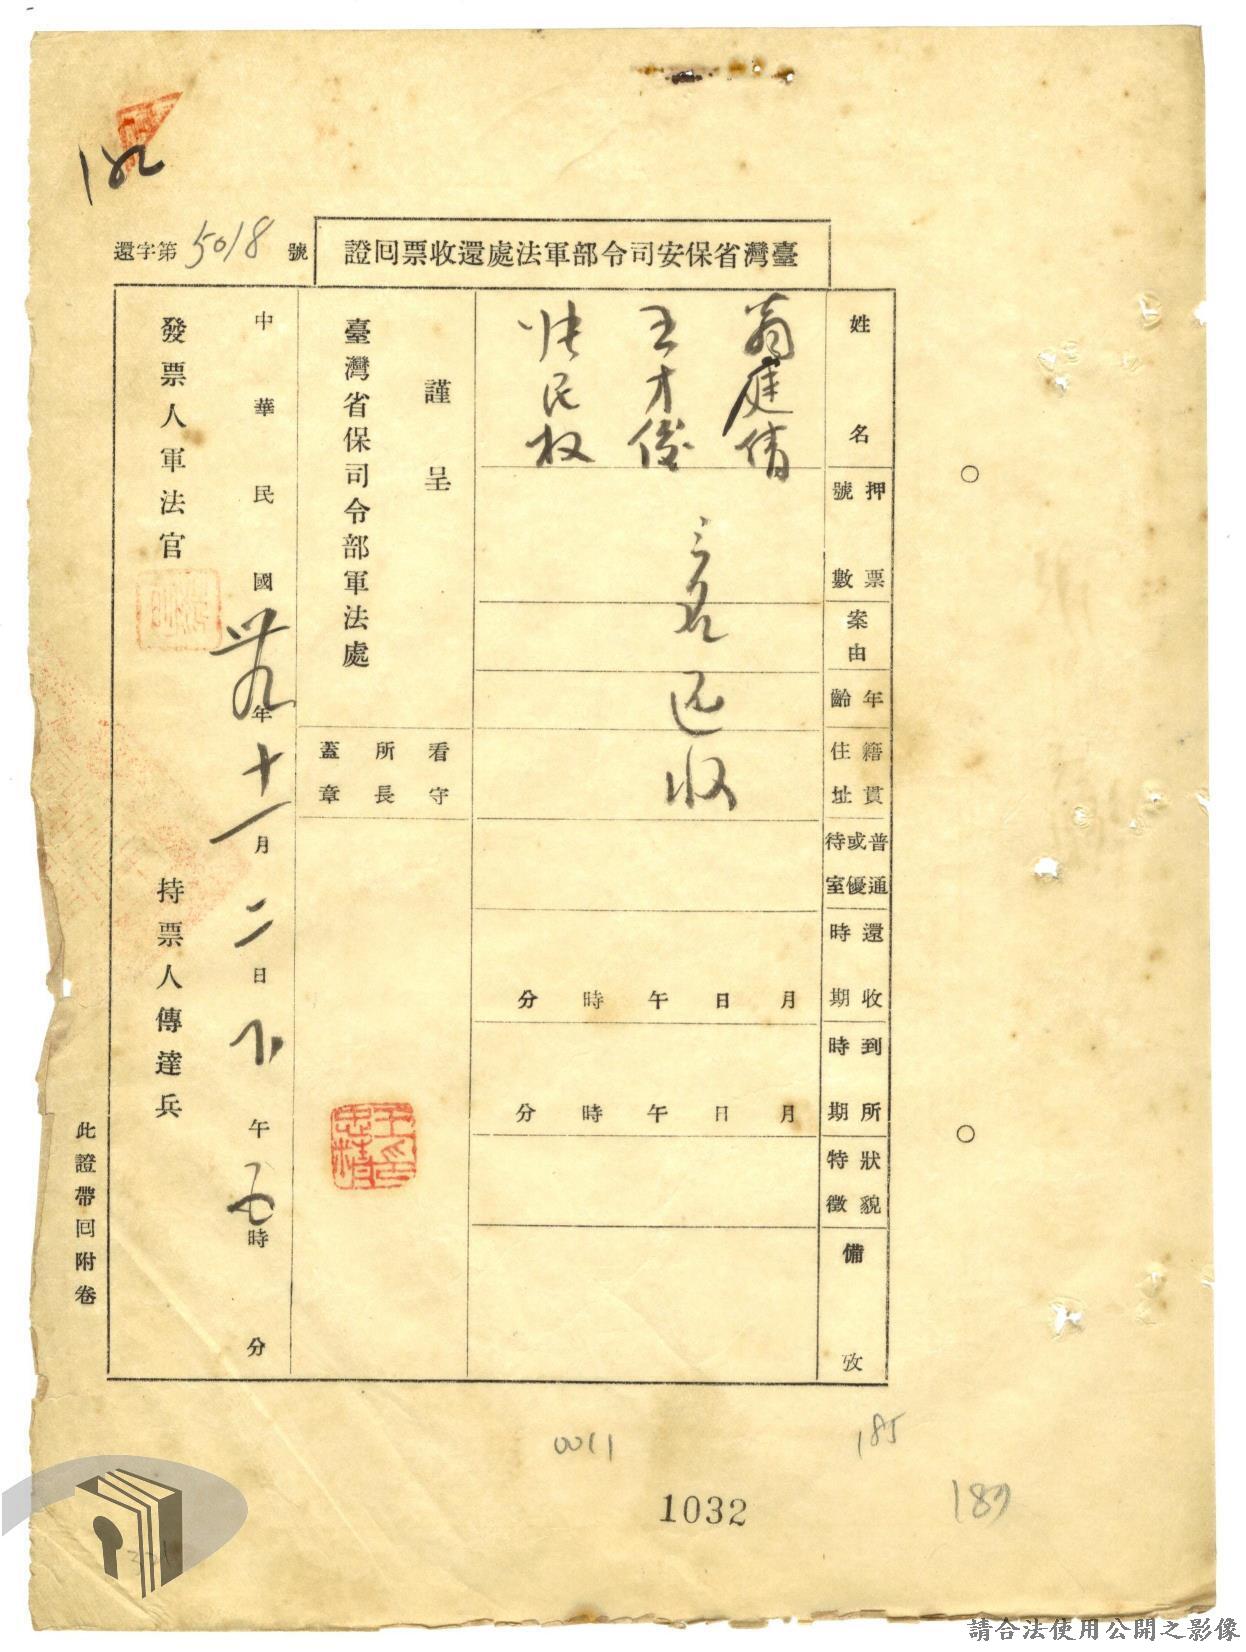 臺灣省保安司令部軍法處還收票回證
還字第5018號
姓名
押票號數
案由
年齡
籍貫住址
普通或優待室
還收時期
到所時期
狀貌特徵
備攷
翁庭倩
王才俊
張民权
三名还收
月日午時分
月日午時分
謹呈
臺灣省保司令部軍法處
看守所長蓋章
中華民國卅九年十一月二日下午五時分
發票人軍法官
持票人傳達兵
此證帶回附卷
0011
185
1032
189
請合法使用公開之影像